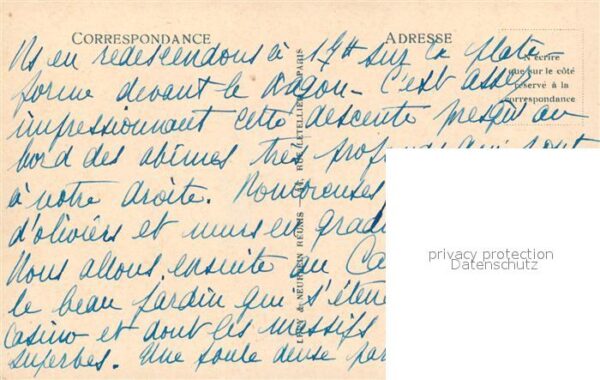 CORRESPONDANCE
ADRESSE
N'écrire
que sur le côté
réservé à la
correspondance
en redescendons à 17H sur la plate-
forme devant le wagon - C'est assez
impressionnant cette descente presqu'au
bord des abîmes très profonds qui sont
à notre droite. Nombreuses
d'oliviers et murs en gradi
Nous allons ensuite au Ca
le beau jardin qui s'éten
casino et dont les massifs
superbes. Une foule dense par
LEVY & NEURDEIN RÉUNIS 44, RUE LETELLIER, PARIS
privacy protection
Datenschutz